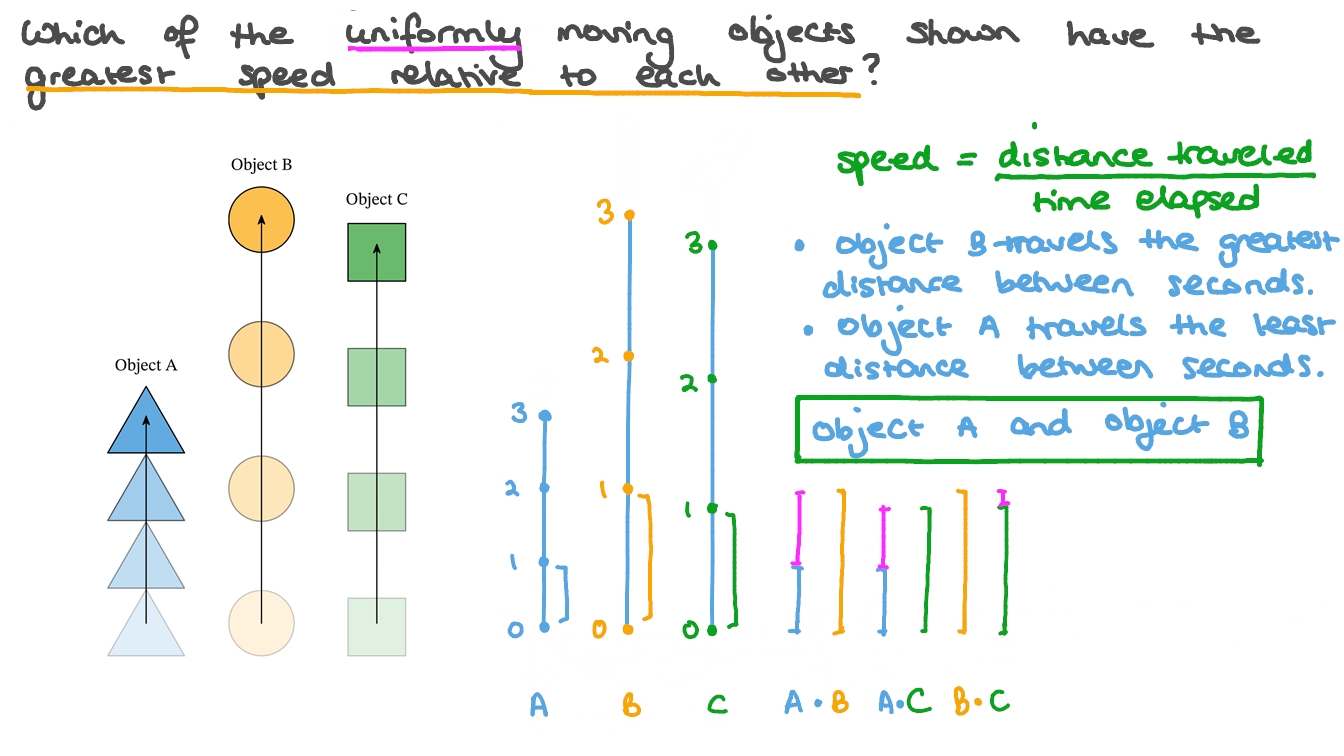 Which of the uniformly moving objects shown have the
greatest speed relative to each other?
Object B
Object C
Object A
3
2
1
0
3
2
1
0
3
2
1
0
A
B
C
A • B
A • C
B • C
speed = distance traveled
time elapsed
• object B travels the greatest
distance between seconds.
• object A travels the least
distance between seconds.
object A and object B